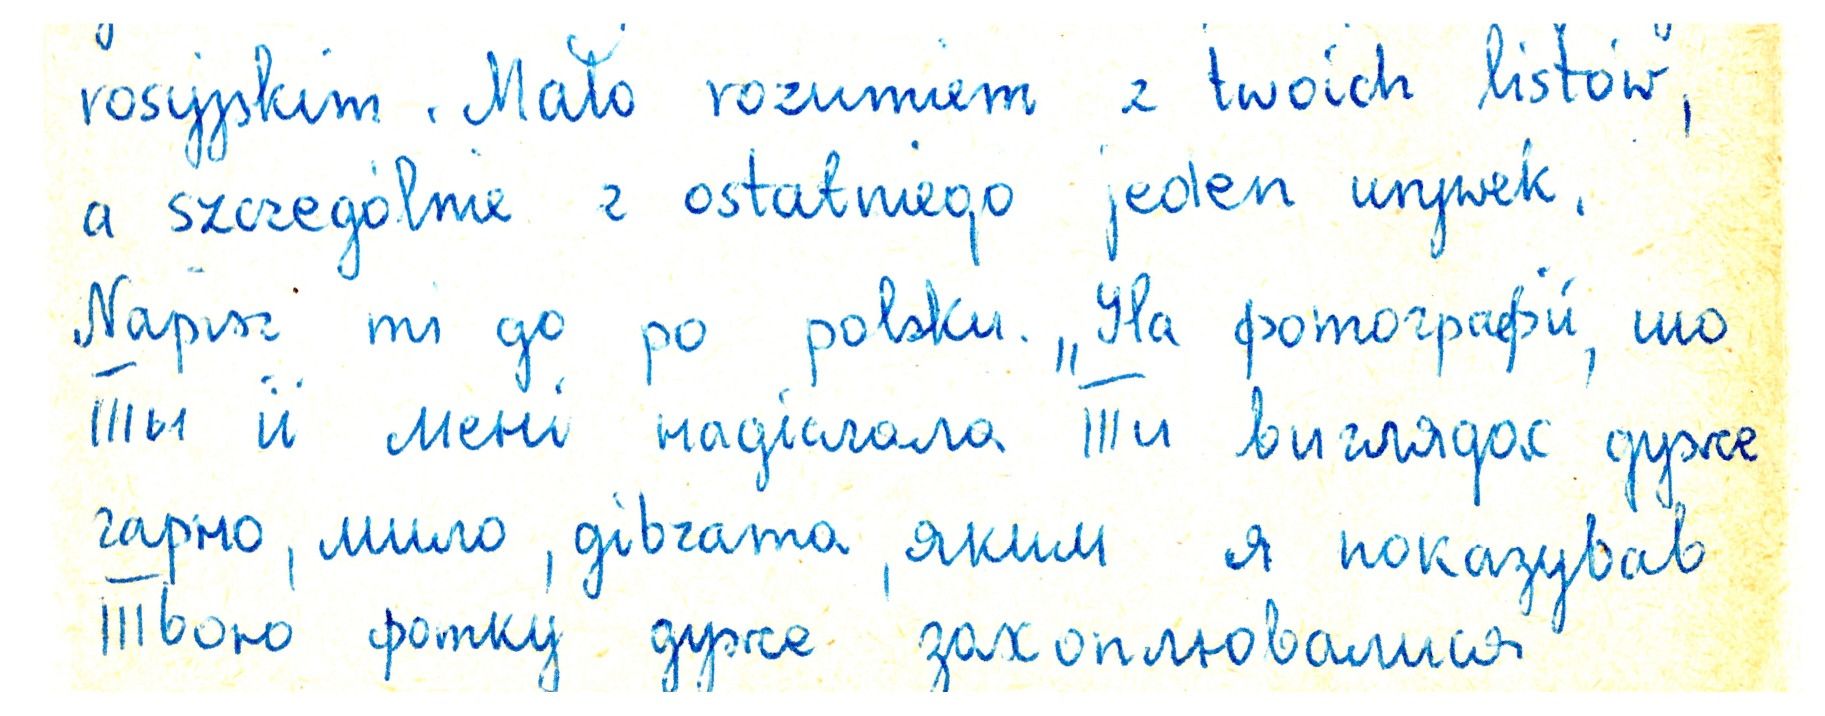 rosyjskim. Mało rozumiem z twoich listów,
a szczególnie z ostatniego jeden urywek.
Napisz mi go po polsku. „На фотографіі, шо
Ты іі мені надіслала Ти виглядаєс дуже
гарно, мило, дівчата, яким я показував
Твою фотку дуже захоплювалися